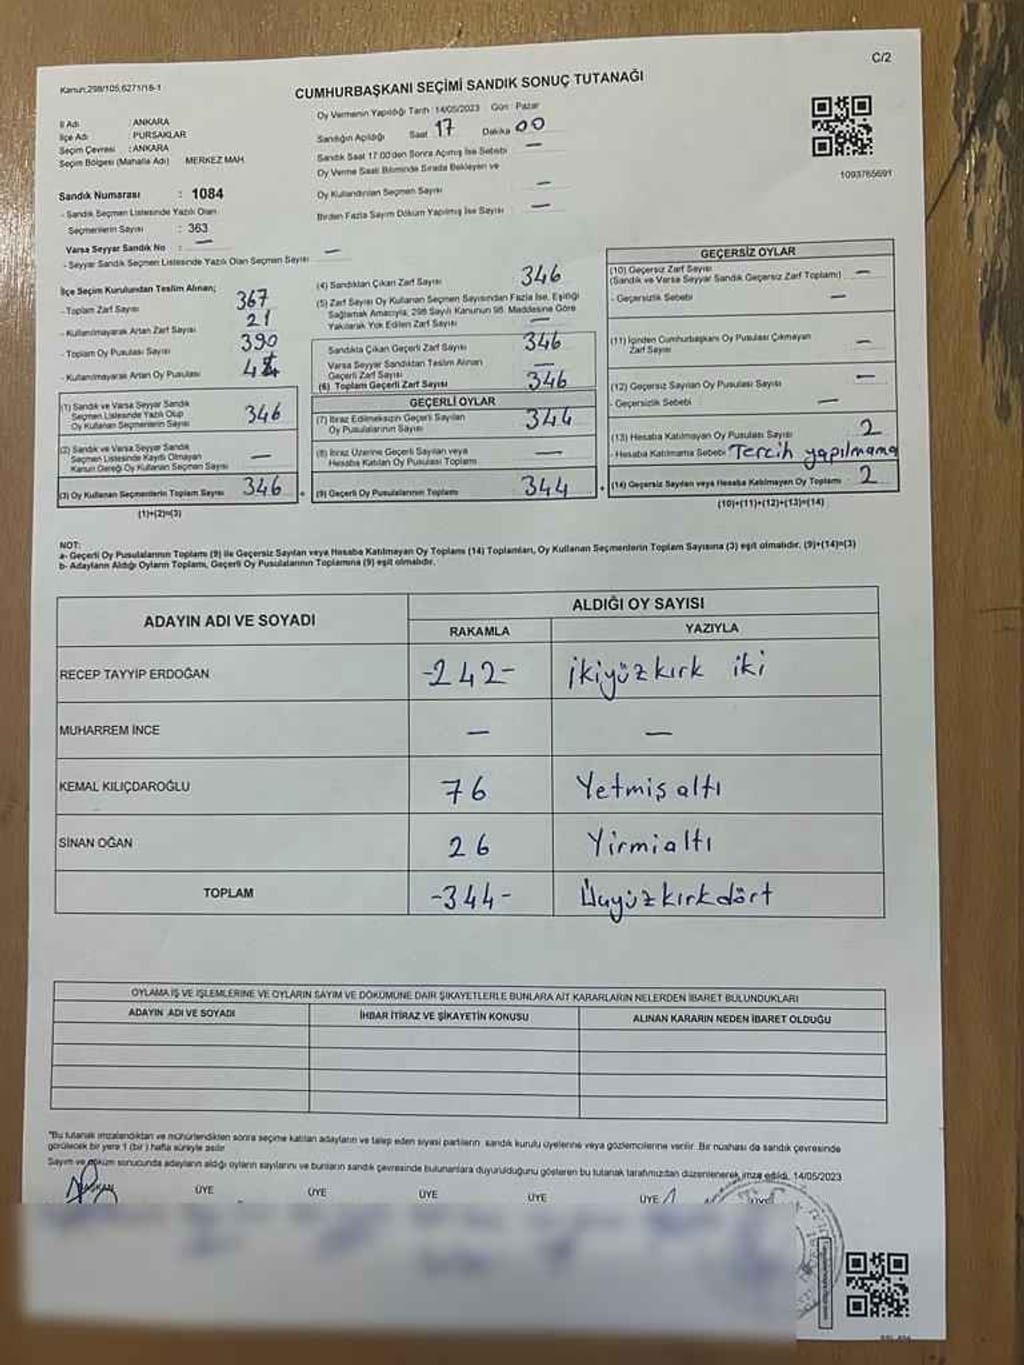 Kanun:298/105,6271/18-1
C/2
CUMHURBAŞKANI SEÇİMİ SANDIK SONUÇ TUTANAĞI
İl Adı : ANKARA
İlçe Adı : PURSAKLAR
Seçim Çevresi : ANKARA
Seçim Bölgesi (Mahalle Adı) MERKEZ MAH.
Oy Vermenin Yapıldığı Tarih : 14/05/2023 Gün : Pazar
Sandığın Açıldığı Saat 17 Dakika 00
Sandık Saat 17.00'den Sonra Açılmış İse Sebebi —
Oy Verme Saati Bitiminde Sırada Bekleyen ve
Oy Kullandırılan Seçmen Sayısı —
Birden Fazla Sayım Döküm Yapılmış İse Sayısı —
1093765691
Sandık Numarası : 1084
- Sandık Seçmen Listesinde Yazılı Olan
Seçmenlerin Sayısı : 363
Varsa Seyyar Sandık No : —
- Seyyar Sandık Seçmen Listesinde Yazılı Olan Seçmen Sayısı —
İlçe Seçim Kurulundan Teslim Alınan;
- Toplam Zarf Sayısı 367
- Kullanılmayarak Artan Zarf Sayısı 21
- Toplam Oy Pusulası Sayısı 390
- Kullanılmayarak Artan Oy Pusulası
(1) Sandık ve Varsa Seyyar Sandık
Seçmen Listesinde Yazılı Olup
Oy Kullanan Seçmenlerin Sayısı 346
(2) Sandık ve Varsa Seyyar Sandık
Seçmen Listesinde Kayıtlı Olmayan
Kanun Gereği Oy Kullanan Seçmen Sayısı —
(3) Oy Kullanan Seçmenlerin Toplam Sayısı 346
(1)+(2)=(3)
(4) Sandıktan Çıkan Zarf Sayısı 346
(5) Zarf Sayısı Oy Kullanan Seçmen Sayısından Fazla İse, Eşitliği
Sağlamak Amacıyla, 298 Sayılı Kanunun 98. Maddesine Göre
Yakılarak Yok Edilen Zarf Sayısı —
Sandıkta Çıkan Geçerli Zarf Sayısı 346
Varsa Seyyar Sandıktan Teslim Alınan
Geçerli Zarf Sayısı —
(6) Toplam Geçerli Zarf Sayısı 346
GEÇERLİ OYLAR
(7) İtiraz Edilmeksizin Geçerli Sayılan
Oy Pusulalarının Sayısı 344
(8) İtiraz Üzerine Geçerli Sayılan veya
Hesaba Katılan Oy Pusulası Toplamı —
(9) Geçerli Oy Pusulalarının Toplamı 344
GEÇERSİZ OYLAR
(10) Geçersiz Zarf Sayısı
(Sandık ve Varsa Seyyar Sandık Geçersiz Zarf Toplamı) —
- Geçersizlik Sebebi —
(11) İçinden Cumhurbaşkanı Oy Pusulası Çıkmayan
Zarf Sayısı —
(12) Geçersiz Sayılan Oy Pusulası Sayısı —
- Geçersizlik Sebebi —
(13) Hesaba Katılmayan Oy Pusulası Sayısı 2
- Hesaba Katılmama Sebebi Tercih yapılmama
(14) Geçersiz Sayılan veya Hesaba Katılmayan Oy Toplamı 2
(10)+(11)+(12)+(13)=(14)
NOT:
a- Geçerli Oy Pusulalarının Toplamı (9) ile Geçersiz Sayılan veya Hesaba Katılmayan Oy Toplamı (14) Toplamları, Oy Kullanan Seçmenlerin Toplam Sayısına (3) eşit olmalıdır. (9)+(14)=(3)
b- Adayların Aldığı Oyların Toplamı, Geçerli Oy Pusulalarının Toplamına (9) eşit olmalıdır.
ADAYIN ADI VE SOYADI ALDIĞI OY SAYISI
RAKAMLA YAZIYLA
RECEP TAYYİP ERDOĞAN -242- ikiyüzkırk iki
MUHARREM İNCE — —
KEMAL KILIÇDAROĞLU 76 Yetmiş altı
SİNAN OĞAN 26 Yirmialtı
TOPLAM -344- Üçyüzkırkdört
OYLAMA İŞ VE İŞLEMLERİNE VE OYLARIN SAYIM VE DÖKÜMÜNE DAİR ŞİKAYETLERLE BUNLARA AİT KARARLARIN NELERDEN İBARET BULUNDUKLARI
ADAYIN ADI VE SOYADI İHBAR İTİRAZ VE ŞİKAYETİN KONUSU ALINAN KARARIN NEDEN İBARET OLDUĞU
*Bu tutanak imzalandıktan ve mühürlendikten sonra seçime katılan adayların ve talep eden siyasi partilerin sandık kurulu üyelerine veya gözlemcilerine verilir. Bir nüshası da sandık çevresinde
görülecek bir yere 1 (bir) hafta süreyle asılır
Sayım ve döküm sonucunda adayların aldığı oyların sayılarını ve bunların sandık çevresinde bulunanlara duyurulduğunu gösteren bu tutanak tarafımızdan düzenlenerek imza edildi. 14/05/2023
BAŞKAN ÜYE ÜYE ÜYE ÜYE ÜYE ÜYE